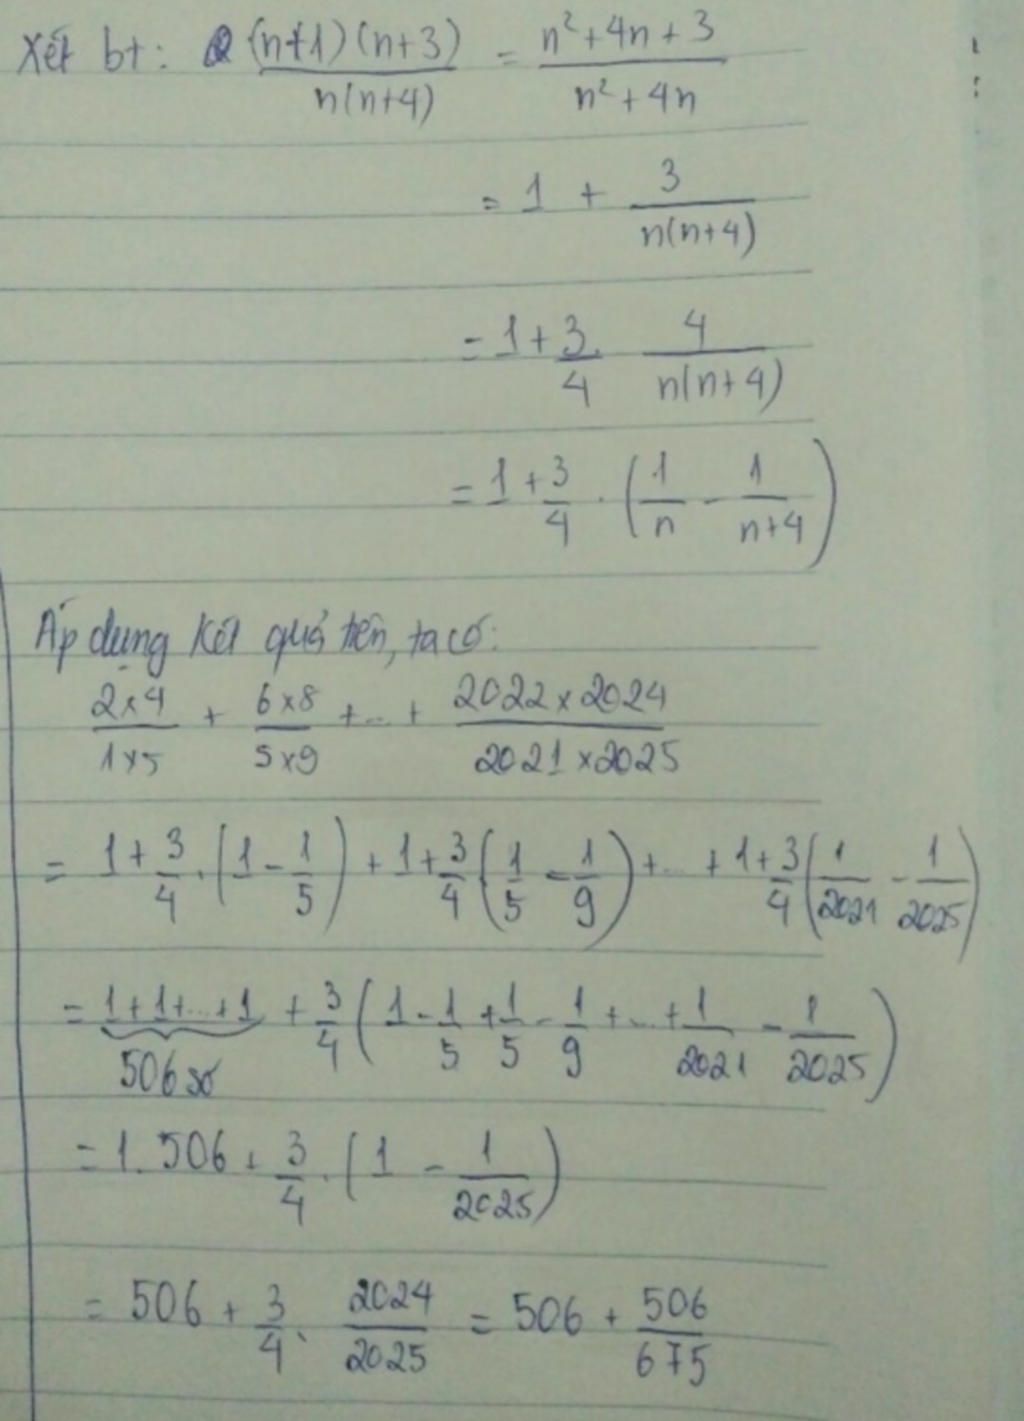 Xét bt: (n+1)(n+3)/n(n+4) = n²+4n+3/n²+4n
= 1 + 3/n(n+4)
= 1 + 3/4 . 4/n(n+4)
= 1 + 3/4 . (1/n - 1/n+4)
Áp dụng kết quả trên, ta có:
2x4/1x5 + 6x8/5x9 + ... + 2022x2024/2021x2025
= 1 + 3/4 . (1 - 1/5) + 1 + 3/4 (1/5 - 1/9) + ... + 1 + 3/4 (1/2021 - 1/2025)
= 1+1+...+1 + 3/4 (1 - 1/5 + 1/5 - 1/9 + ... + 1/2021 - 1/2025)
506 số
= 1.506 + 3/4 . (1 - 1/2025)
= 506 + 3/4 . 2024/2025 = 506 + 506/675